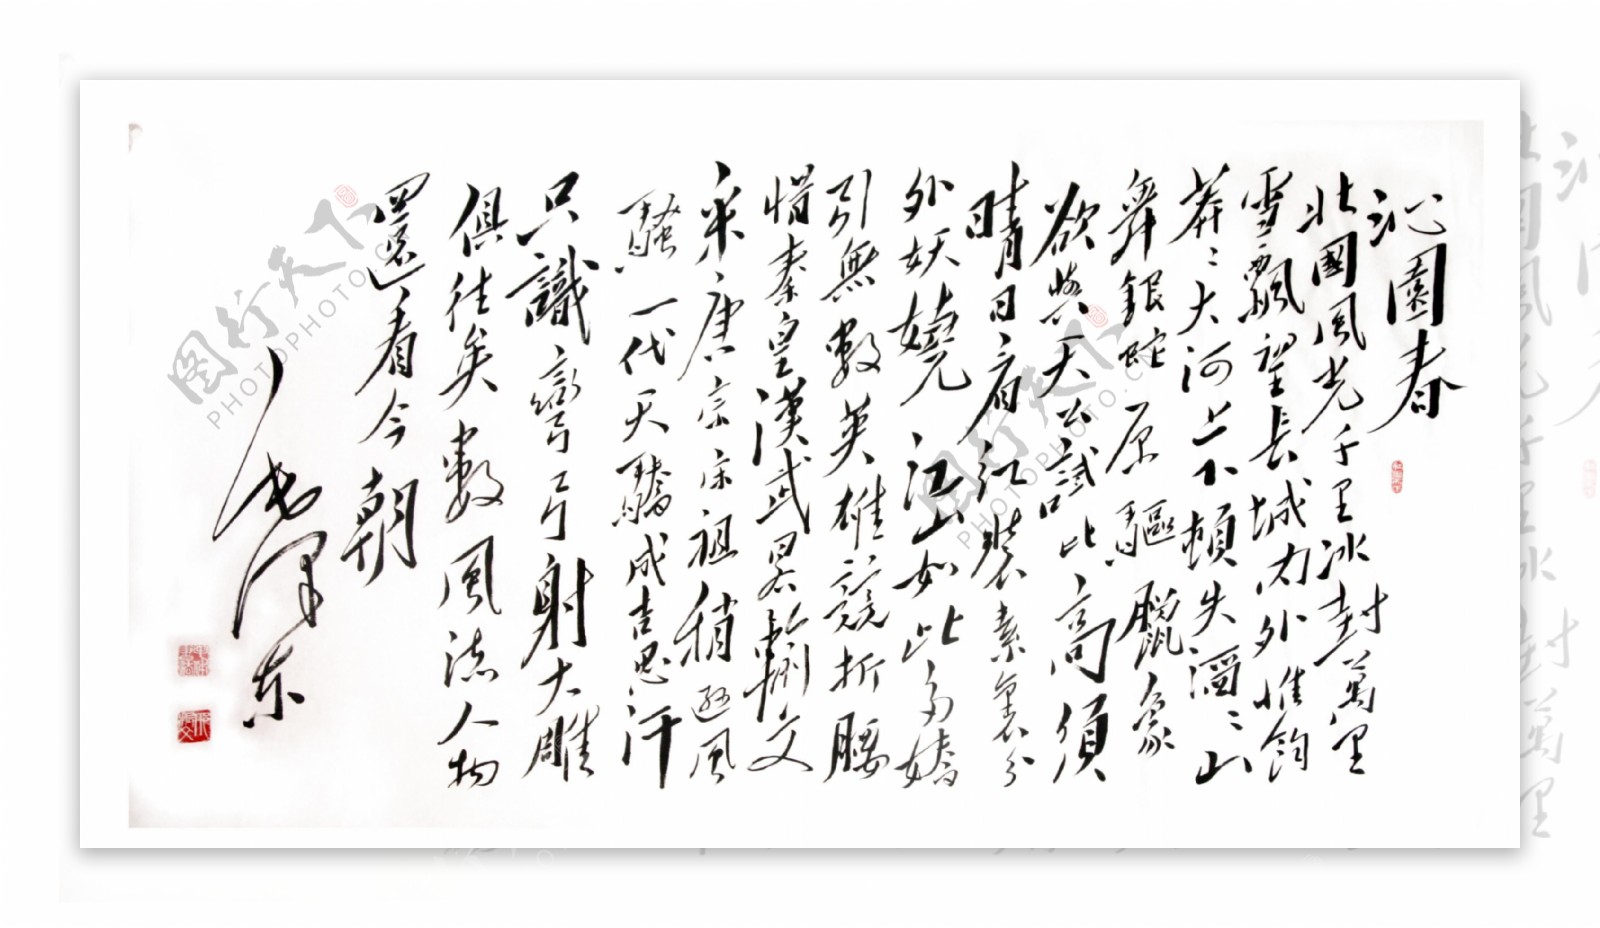 沁園春
北國風光千里冰封萬里
雪飄望長城内外惟餘
莽〻大河上下頓失滔〻山
舞銀蛇原驅臘象
欲與天公試比高須
晴日看紅裝素裹分
外妖嬈江山如此多嬌
引無數英雄競折腰
惜秦皇漢武畧輸文
采唐宗宋祖稍遜風
騷一代天驕成吉思汗
只識彎弓射大雕
俱往矣數風流人物
還看今朝
毛澤东
图行天下
PHOTOPHOTO.CN
图行天下
PHOTOPHOTO.CN